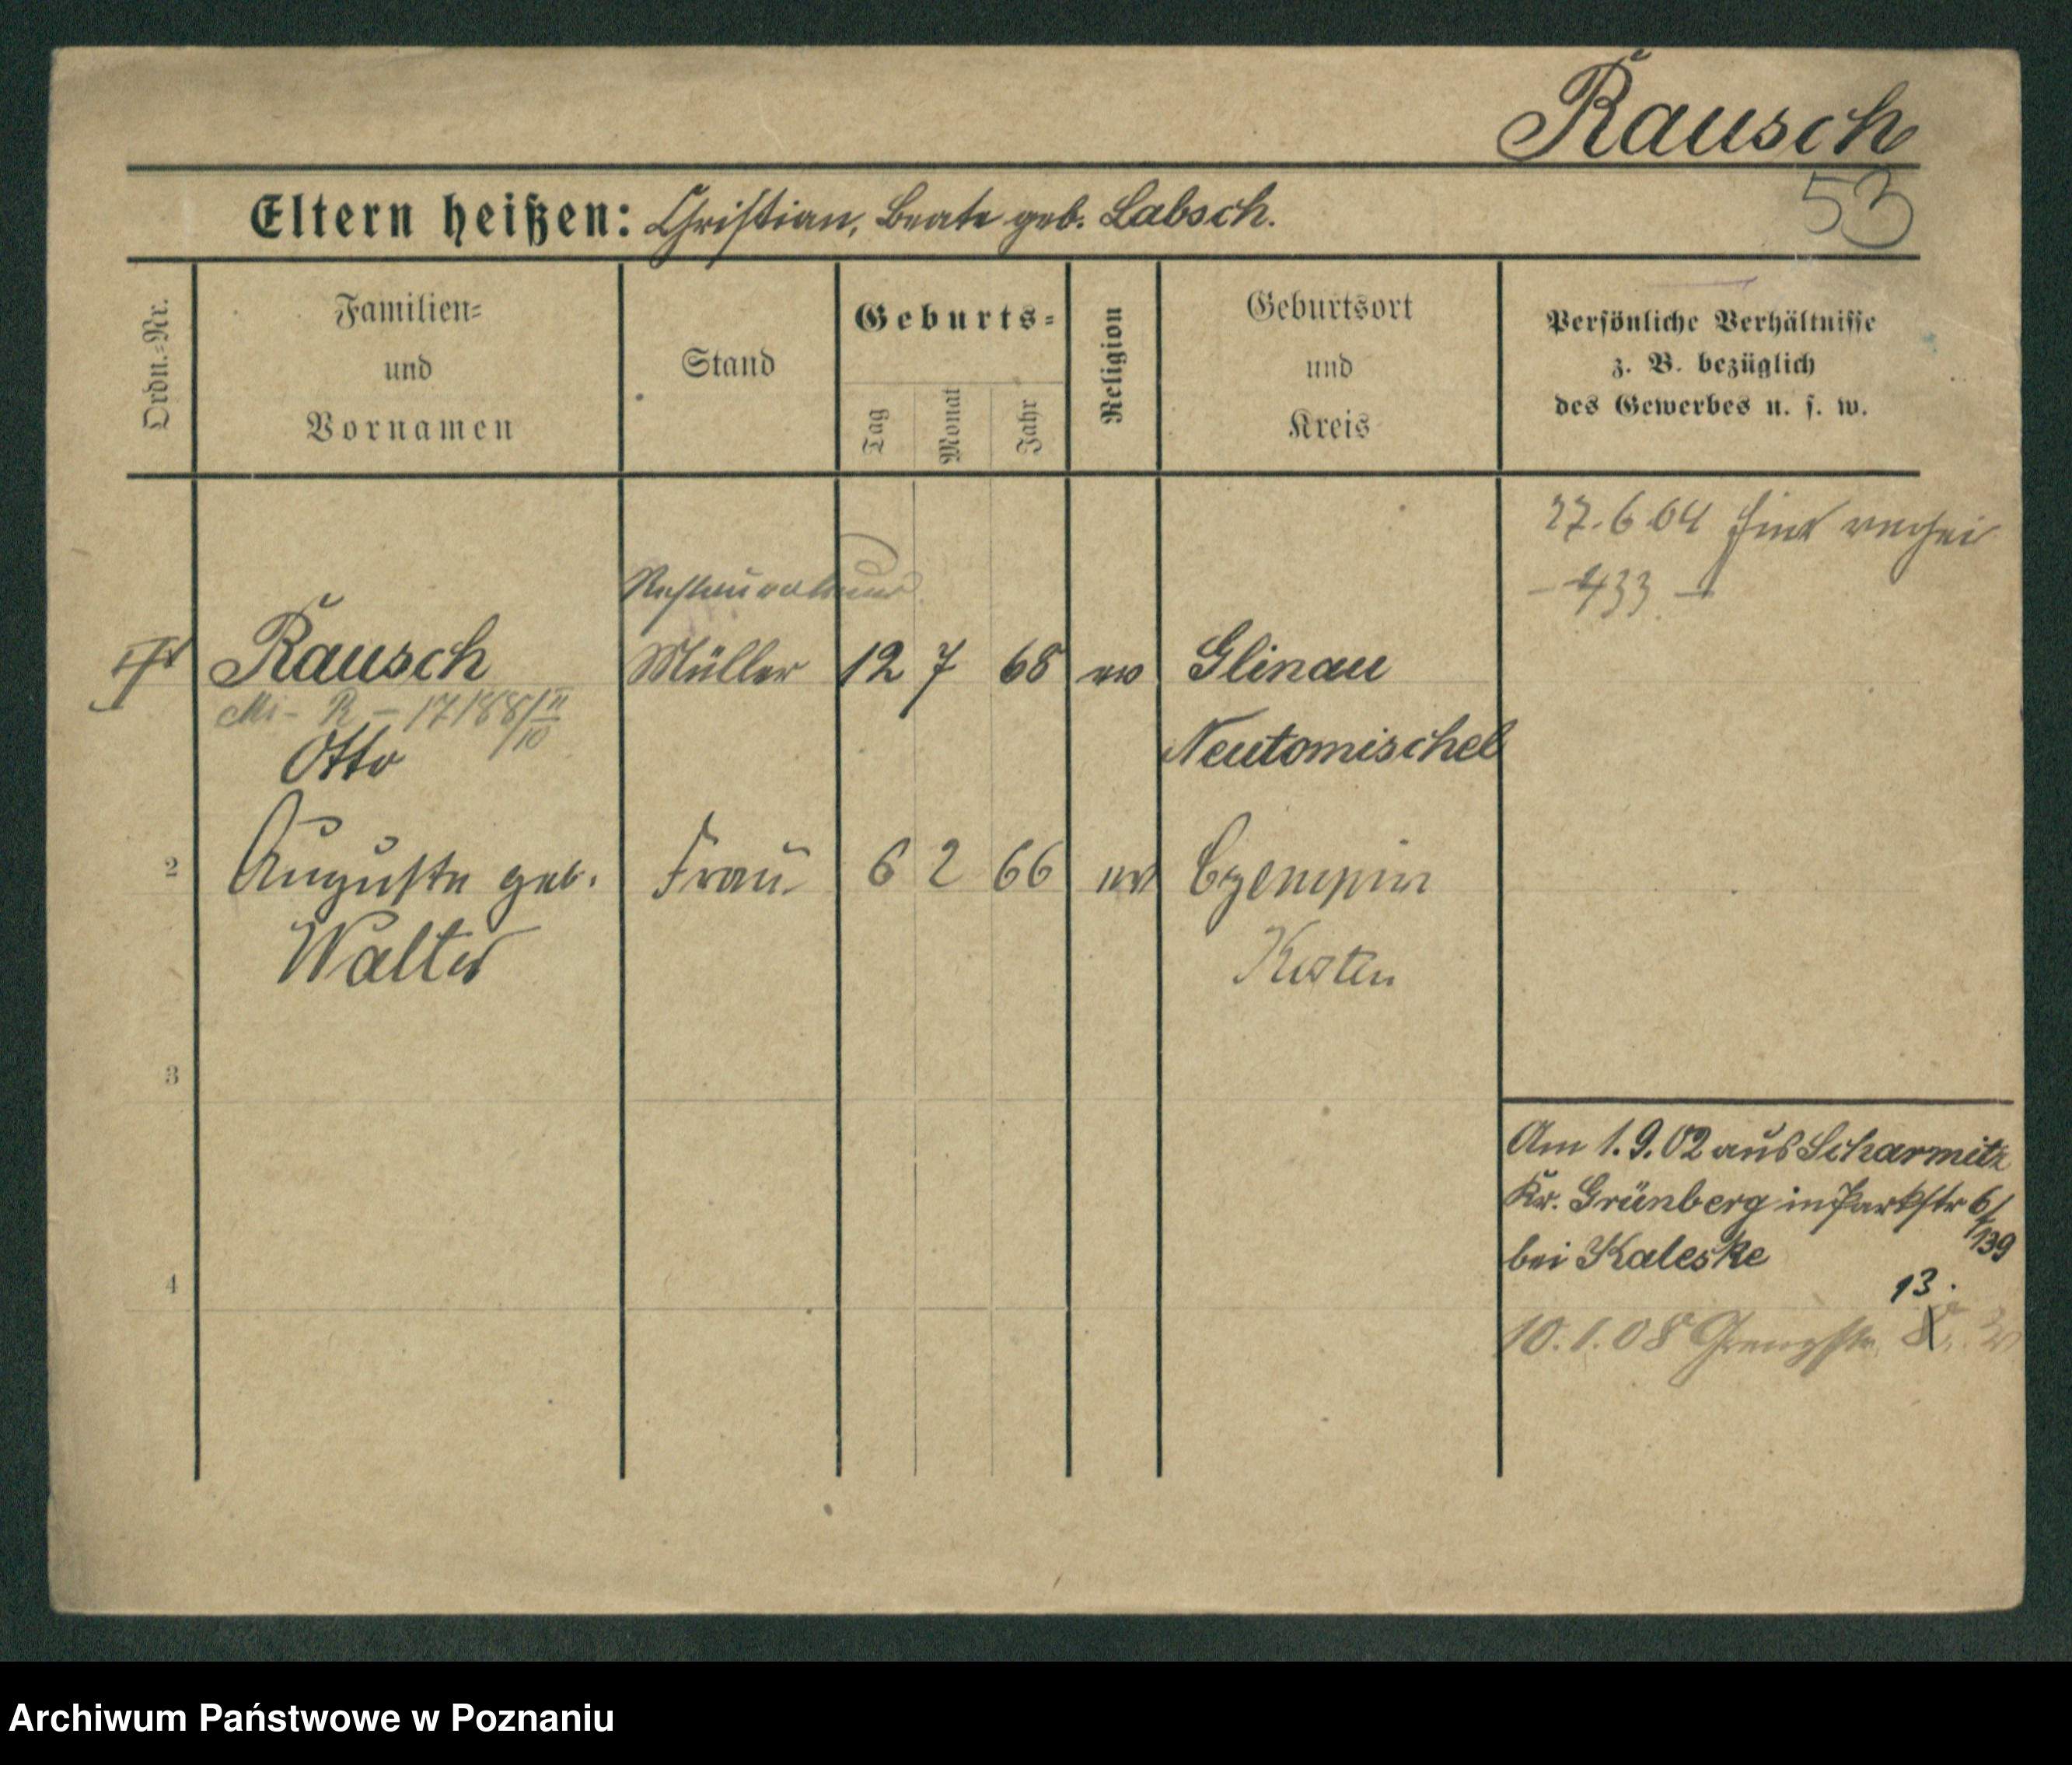 Rausch
53
Eltern heißen: Christian, Beate geb. Labsch.
Ordn.=Nr.
Familien=
und
Vornamen
Stand
Geburts=
Tag
Monat
Jahr
Religion
Geburtsort
und
Kreis
Persönliche Verhältnisse
z. B. bezüglich
des Gewerbes u. s. w.
27.6.04
433
Restaurateur
Rausch Müller 12 7 68 ev Glinau
Mi- R - 17188/
Otto Neutomischel
2 Auguste geb. Frau 6 2 66 ev Czempin
Walter Kosten
3
Am 1.9.02 aus Scharmitz
Kr. Grünberg in Parkstr 6/
139
bei Kaleske
4
13.
10.1.08 Grenzstr.
Archiwum Państwowe w Poznaniu